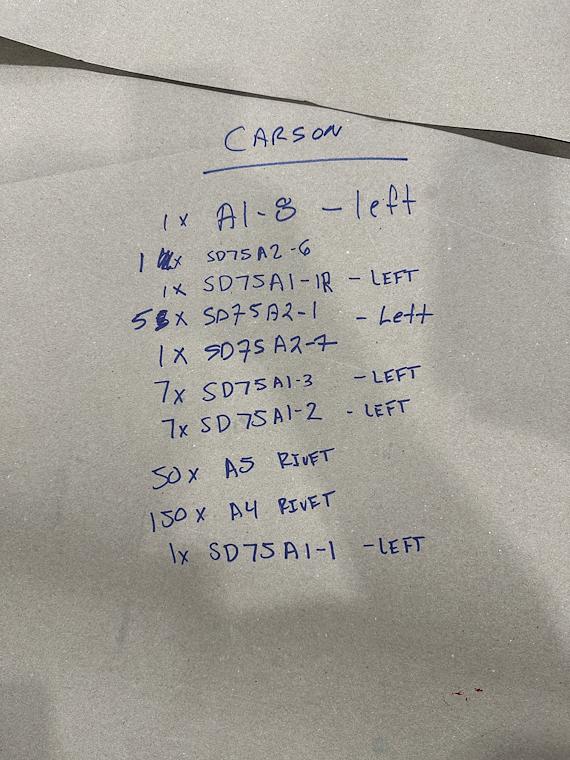 CARSON
1x A1-8 - left
1 x SD75A2-6
1x SD75A1-1R - LEFT
5 x SD75A2-1 - Left
1x SD75A2-7
7x SD75A1-3 - LEFT
7x SD75A1-2 - LEFT
50x A5 RIVET
150x A4 RIVET
1x SD75A1-1 - LEFT